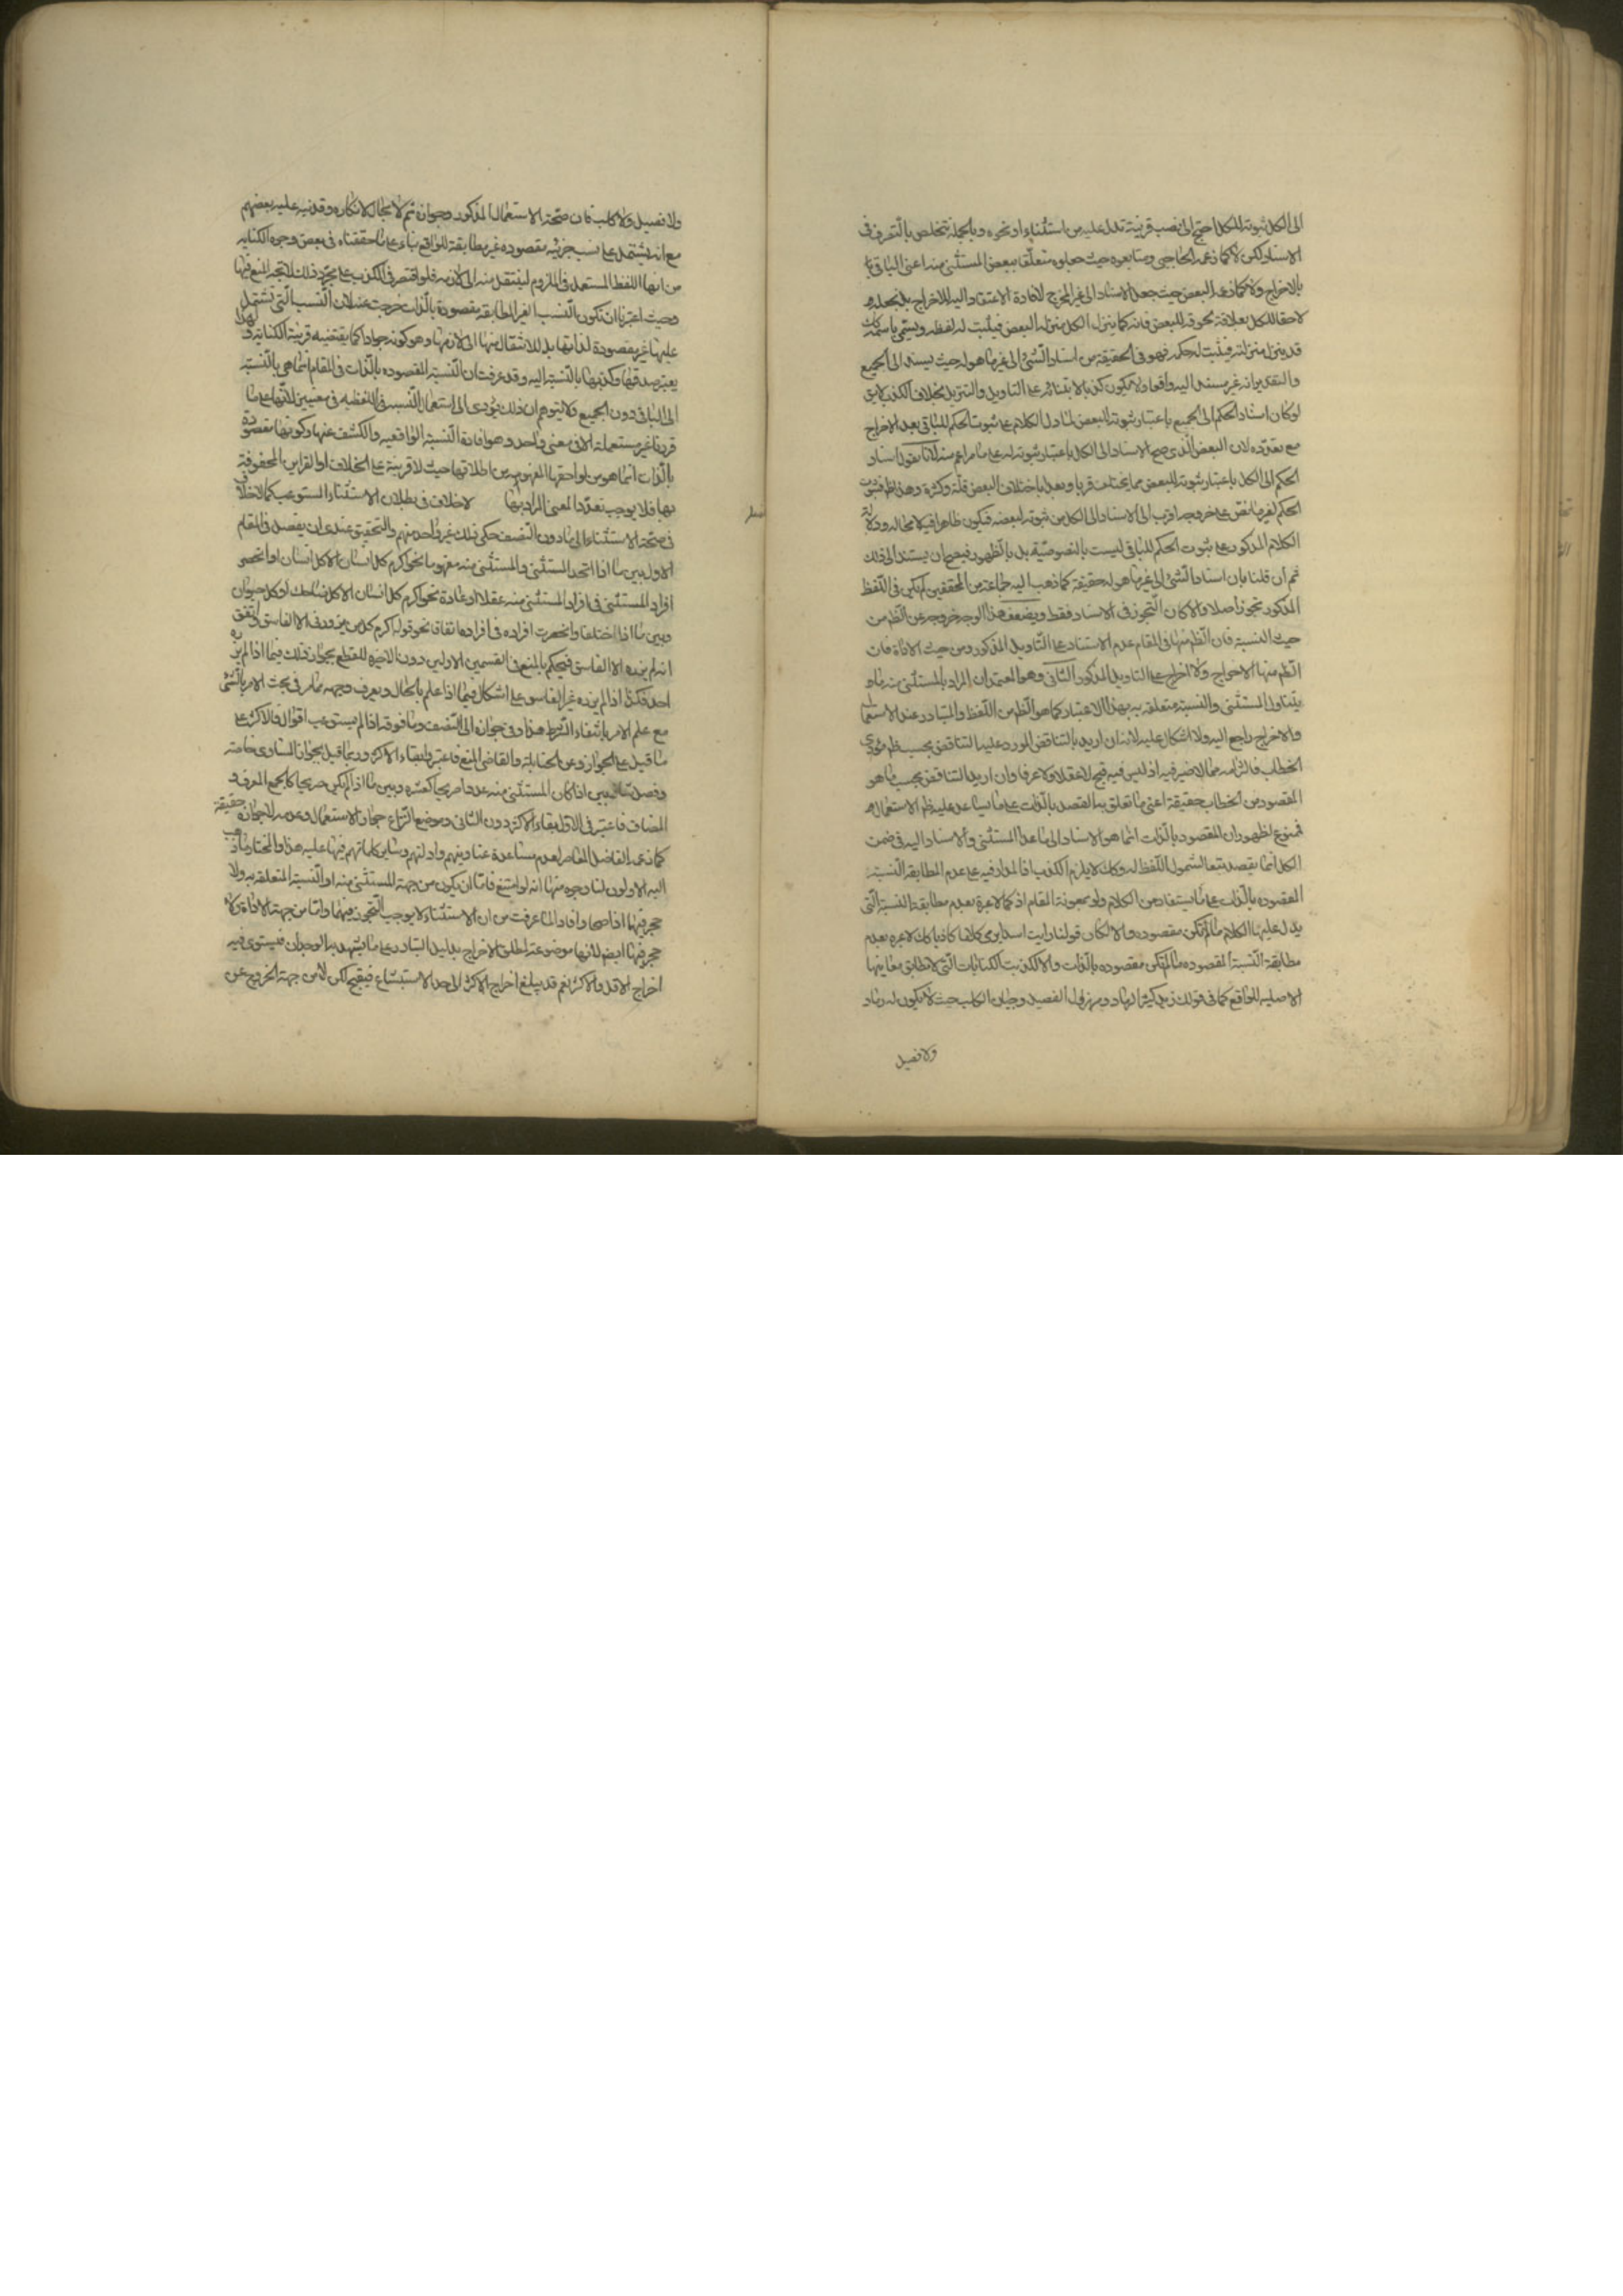 الى الكل ثبوته للكل احتج الى نصب قرينة تدل عليه من استثناء او نحوه وبالجملة يتخلص بالتصرف فى
الاسناد لكن لا كما زعمه الحاجبى ومتابعوه حيث جعلوه متعلقا ببعض المستثنى منه اعنى الباقى
بالاخراج ولا كما زعمه البعض حيث جعل الاسناد الى غير المخرج لافادة الاعتقاد اليه للاخراج بل بجعله
لاحقا للكل بعلاقة لحوقه للبعض فانه كما ينزل الكل منزلة البعض فيثبت له لفظه ويسمى باسمه كك
قد ينزل منزلته فيثبت له حكمه فهو فى الحقيقة من اسناد الشئ الى غير ما هو له حيث يسند الى الجميع
والتقدير انه غير مسند اليه واقعا ولا يكون كذبا لابتنائه على التاويل والتنزيل بخلاف الكذب لايق
لو كان اسناد الحكم الى الجميع باعتبار ثبوته للبعض لما دل الكلام على ثبوت الحكم للباقى بعد الاخراج
مع تعدده لان البعض الذى صح الاسناد الى الكل باعتبار ثبوته له على ما مر اعم منه لانا نقول اسناد
الحكم الى الكل باعتبار ثبوته للبعض مما يختلف قربا وبعدا باختلاف البعض قلة وكثرة وهذا ظ فثبوت
الحكم لغير ما نص على خروجه اقرب الى الاسناد الى الكل من ثبوته لبعضه فيكون ظاهرا فيه لا محالة ودلالة
الكلام المذكور على ثبوت الحكم للباقى ليست بالنصوصية بل بالظهور فيصح ان يستند الى ذلك
ثم ان قلنا بان اسناد الشئ الى غير ما هو له حقيقة كما ذهب اليه جماعة من المحققين لم يكن فى اللفظ
المذكور تجوز اصلا والا كان التجوز فى الاسناد فقط ويضعف هذا الوجه خروجه عن الظ من
حيث النسبة فان الظ منها فى المقام عدم الاستناد على التاويل المذكور ومن حيث الاداة فان
الظ منها الاخراج ولا اخراج على التاويل المذكور الثانى وهو المعتمد ان المراد بالمستثنى منه ما
يتناول المستثنى والنسبة متعلقة به بهذا الاعتبار كما هو الظ من اللفظ والمتبادر عند الاستعمال
والاخراج راجع اليه ولا اشكال عليه لانه ان اريد بالتناقض المورد عليه التناقض بحسب ظ مؤدى
الخطاب فالتزامه مما لا ضير فيه اذ ليس فيه قبح لا عقلا ولا عرفا وان اريد التناقض بحسب ما هو
المقصود من الخطاب حقيقة اعنى ما تعلق به القصد بالذات على ما يساعد عليه ظ الاستعمال
فممنوع لظهور ان المقصود بالذات انما هو الاسناد الى ما عدا المستثنى والاسناد اليه فى ضمن
الكل انما يقصد تبعا لشمول اللفظ له وكك لا يلزم الكذب اذ المدار فيه على عدم المطابقة النسبة
المقصوده بالذات على ما يستفاد من الكلام ولو بمعونة المقام اذ كما لا عبرة بعدم مطابقة النسبة التى
يدل عليها الكلام ما لم تكن مقصوده والا لكان قولنا رايت اسدا يرمى كلاما كاذبا كك لا عبره بعدم
مطابقة النسبة المقصوده ما لم تكن مقصوده بالذات والا لكذبت الكنايات التى لا تطابق معاينها
الاصلية للواقع كما فى قولك زيد كثير الرماد ومهزول الفصيل وجبان الكلب حيث لا يكون له رماد
ولا فصيل
ولا فصيل ولا كلب فان صحة الاستعمال المذكور وجوازه ثم لا مجال لانكاره وقد نبه عليه بعضهم
مع انه يشتمل على نسب جزئيه مقصوده غير مطابقة للواقع بناء على ما حققناه فى بعض وجوه الكنايه
من انها اللفظ المستعمل فى الملزوم لينتقل منه الى لازمه فلو اقتصر فى الكذب على مجرد ذلك لاتجه المنع فيها
وحيث اعتبرنا ان تكون النسب الغير المطابقة مقصودة بالذات خرجت عنه لان النسب التى تشتمل
عليها غير مقصودة لذاتها بل للانتقال منها الى لازمها وهو كونه جوادا كما يقتضيه قرينة الكناية ولهذا
يعتبر صدقها وكذبها بالنسبة اليه وقد عرفت ان النسبة المقصوده بالذات فى المقام انما هى بالنسبة
الى الباقى دون الجميع ولا يتوهم ان ذلك يؤدى الى استعمال النسب اللفظيه فى معنيين لانها على ما
قررنا غير مستعملة الا فى معنى واحد وهو افادة النسبة الواقعيه والكشف عنها وكونها مقصودة
بالذات انما هو من لواحقها المفهومه من اطلاقها حيث لا قرينة على الخلاف او القراين المحفوفة
بها فلا يوجب تعدد المعنى المراد بها لا خلاف فى بطلان الاستثناء المستوعب كما لا خلاف
فصل
فى صحة الاستثناء الى ما دون النصف حكى ذلك غير واحد منهم والتحقيق عندى ان يفصل فى المقام
الاول بين ما اذا اتحد المستثنى والمستثنى منه مفهوما نحو اكرم كل انسان الا كل انسان او انحصر
افراد المستثنى فى افراد المستثنى منه عقلا او عادة نحو اكرم كل انسان الا كل ضاحك او كل حيوان
وبين ما اذا اختلفا وانحصرت افراده فى افرادها اتفاقا نحو قوله اكرم كل من يزورنى الا الفاسق واتفق
انه لم يزره الا الفاسق فيحكم بالمنع فى القسمين الاولين دون الاخيره للقطع بجواز ذلك فيما اذا لم يزره
احد فكذا اذا لم يزره غير الفاسق على اشكال فيما اذا علم بالحال ويعرف وجهه مما مر فى بحث الامر بالشئ
مع علم الامر بانتفاء الشرط هذا وفى جوازه الى النصف وما فوقه اذا لم يستوعب اقوال فالاكثر على
ما قيل على الجواز وعن الحنابلة والقاضى المنع فاعتبروا بقاء الاكثر وربما قيل بجواز المساوى خاصة
وفصل ثالث بين اذا كان المستثنى منه عددا صريحا كعشره وبين ما اذا لم يكن صريحا كالجمع المعرف و
المضاف فاعتبر فى الاول بقاء الاكثر دون الثانى وموضع النزاع جواز الاستعمال وعدمه لا جوازه حقيقة
كما زعمه الفاضل المعاصر لعدم مساعدة عناوينهم وادلتهم وساير كلماتهم فيها عليه هذا والمختار ما ذهب
اليه الاولون لنا وجوه منها انه لو امتنع فاما ان يكون من جهة المستثنى منه او النسبة المتعلقة به ولا
حجر فيها اذا صحا وافادا لما عرفت من ان الاستثناء لا يوجب التجوز فيهما واما من جهة الاداة ولا
حجر فيها ايض لانها موضوعة لمطلق الاخراج بدليل التبادر على ما يشهد به الوجدان فيستوى فيه
اخراج الاقل والاكثر نعم قد يبلغ اخراج الاكثر الى حد الاستبشاع فيقبح لكن لا من جهة الخروج عن